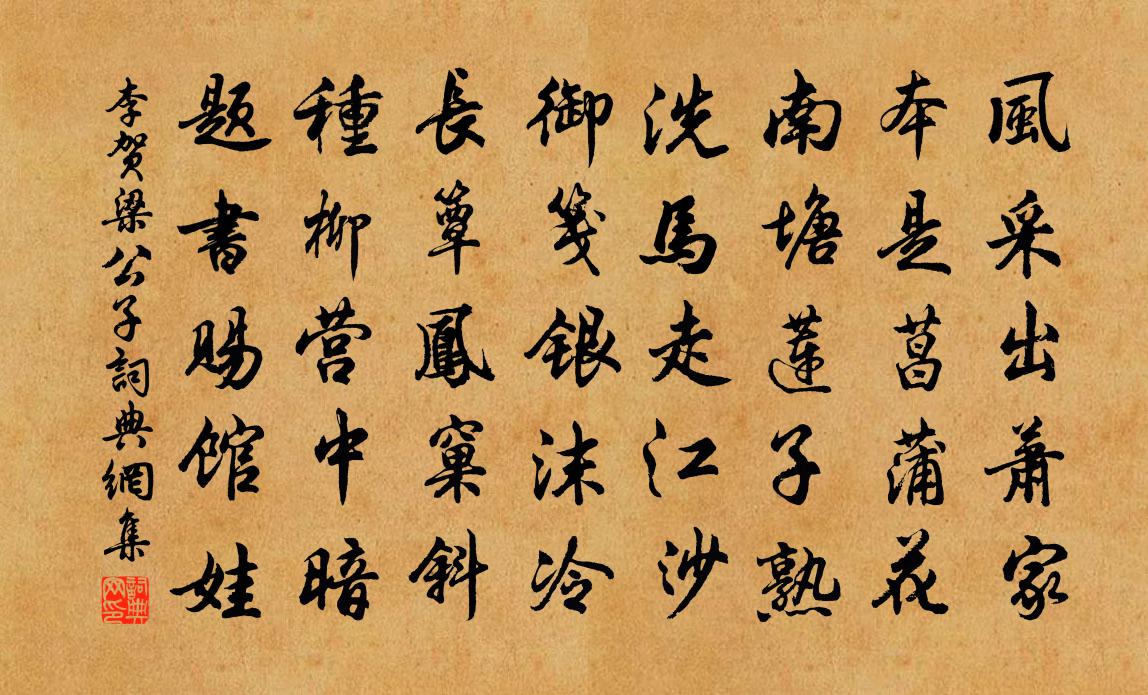 風采出蕭家
本是菖蒲花
南塘蓮子熟
洗馬走江沙
御箋銀沫冷
長簟鳳窠斜
種柳營中暗
題書賜館娃
李賀梁公子詞典網集
詞典网印